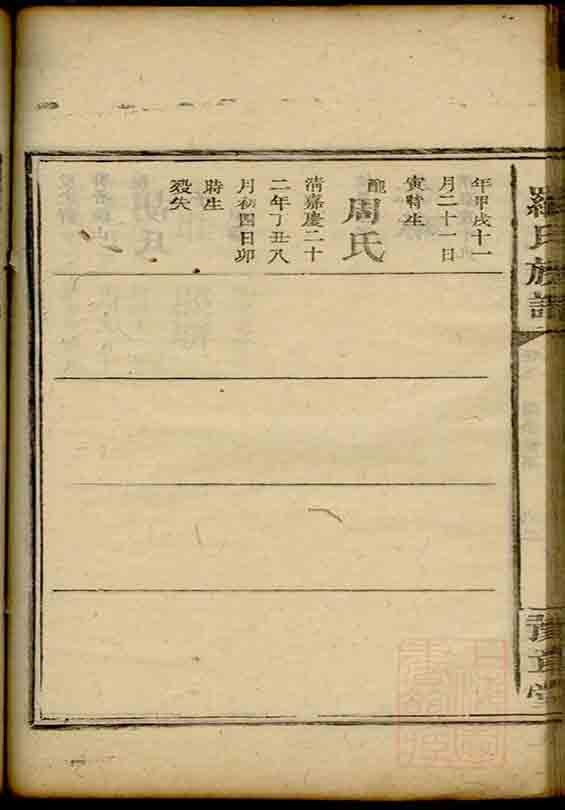 羅氏族譜
豫章堂
年甲戌十一
月二十一日
寅時生
配周氏
清嘉慶二十
二年丁丑八
月初四日卯
時生
歿失